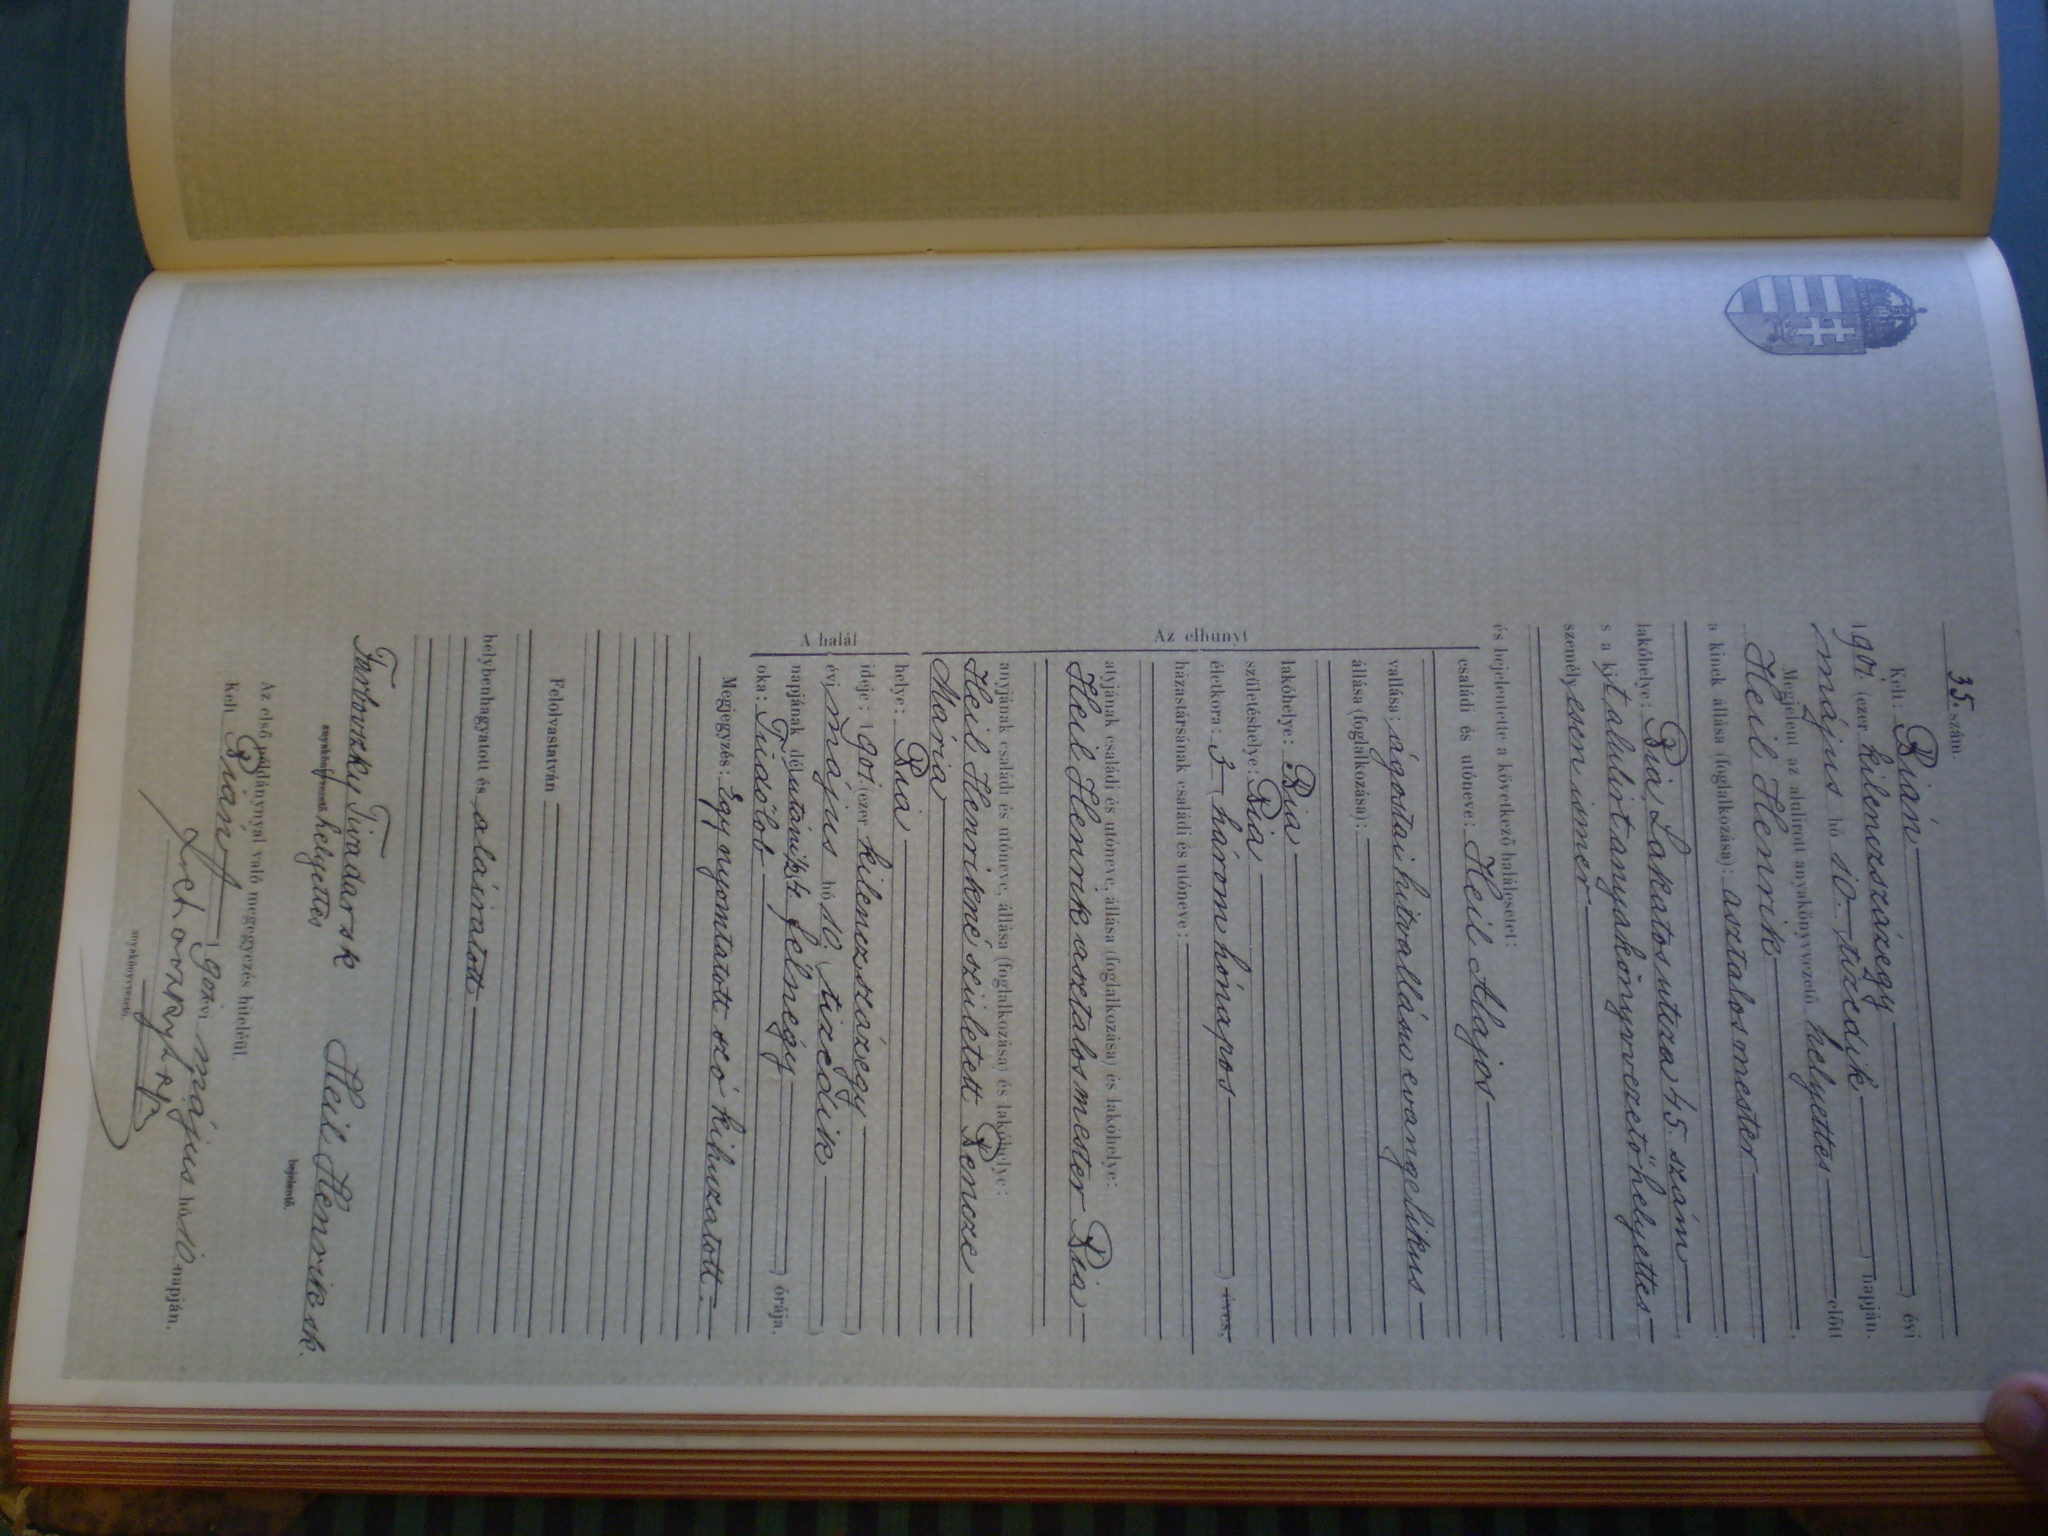 35. szám.
Kelt: Bián évi
1901. (ezer kilenczszázegy ) évi
május hó 10. (tizedik ) napján.
Megjelent az alulirott anyakönyvvezető helyettes előtt
Heil Henrik
a kinek állása (foglalkozása): asztalosmester
lakóhelye: Bia, Lakatos utcza 45. szám
s a kit alulirt anyakönyvvezető helyettes
személyesen ismer
és bejelentette a következő halálesetet:
Az elhunyt
családi és utóneve: Heil Alajos
vallása: ágostai hitvallásu evangelikus
állása (foglalkozása):
lakóhelye: Bia
születéshelye: Bia
életkora: 3 (három hónapos ) éves,
házastársának családi és utóneve:
atyjának családi és utóneve, állása (foglalkozása) és lakóhelye:
Heil Henrik asztalosmester Bia
anyjának családi és utóneve, állása (foglalkozása) és lakóhelye:
Heil Henrikné született Bencze
Mária
A halál
helye: Bia
ideje: 1901. (ezer kilenczszázegy )
évi május hó 10. (tizedik )
napjának délutáni félnégy ) órája.
oka: Tüdőlob
Megjegyzés: Egy nyomtatott szó kihuzatott.
Felolvastatván
helybenhagyatott és aláiratott.
Tivadar sk Heil Henrik sk.
helyettes bejelentő.
Az első példánynyal való megegyezés hiteléül.
Kelt Bián 1901 évi május hó 10. napján.
anyakönyvvezető.